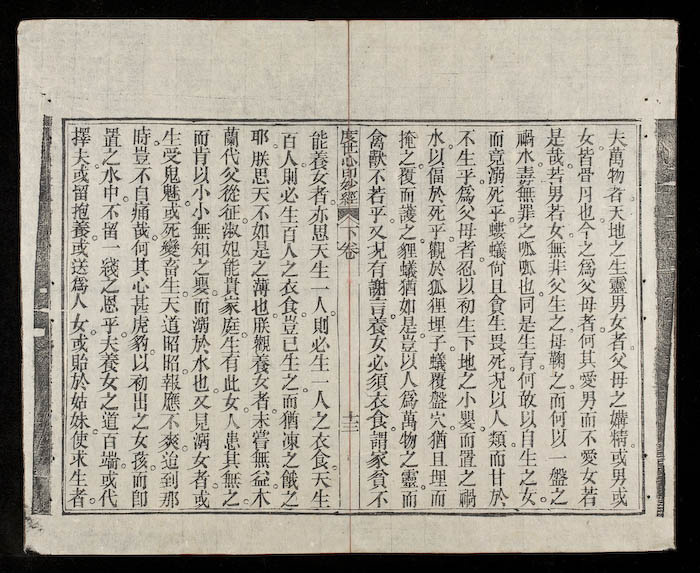 夫萬物者天地之生靈男女者父母之媾精或男或
女皆骨月也今之爲父母者何其愛男而不愛女若
是哉若男若女無非父生之母鞠之而何以一盤之
禍水毒無罪之呱呱也同是生育何敢以自生之女
而竟溺死乎螻蟻何且貪生畏死况以人類而甘於
不生乎爲父母者忍以初生下地之小嬰而置之禍
水以偪於死乎觀於狐狸埋子蟻覆盤穴猶且埋而
掩之覆而護之貍蟻猶如是豈以人爲萬物之靈而
禽獸不若乎又况有謝言養女必須衣食謂家貧不
度世心印妙經 下卷 十三
能養女者亦思天生一人則必生一人之衣食天生
百人則必生百人之衣食豈已生之而猶凍之餓之
耶朕思天不如是之薄也朕觀養女者未嘗無益木
蘭代父從征淑妃能貴家庭生有此女人患其無之
而肯以小小無知之嬰而溺於水也又見溺女者或
生受鬼魅或死變畜生天道昭昭報應不爽迨到那
時豈不自痛哉何其心甚虎豹以初出之女孩而卽
置之水中不留一綫之恩乎夫養女之道百端或代
擇夫或留抱養或送爲人女或貽於姑妹使求生者